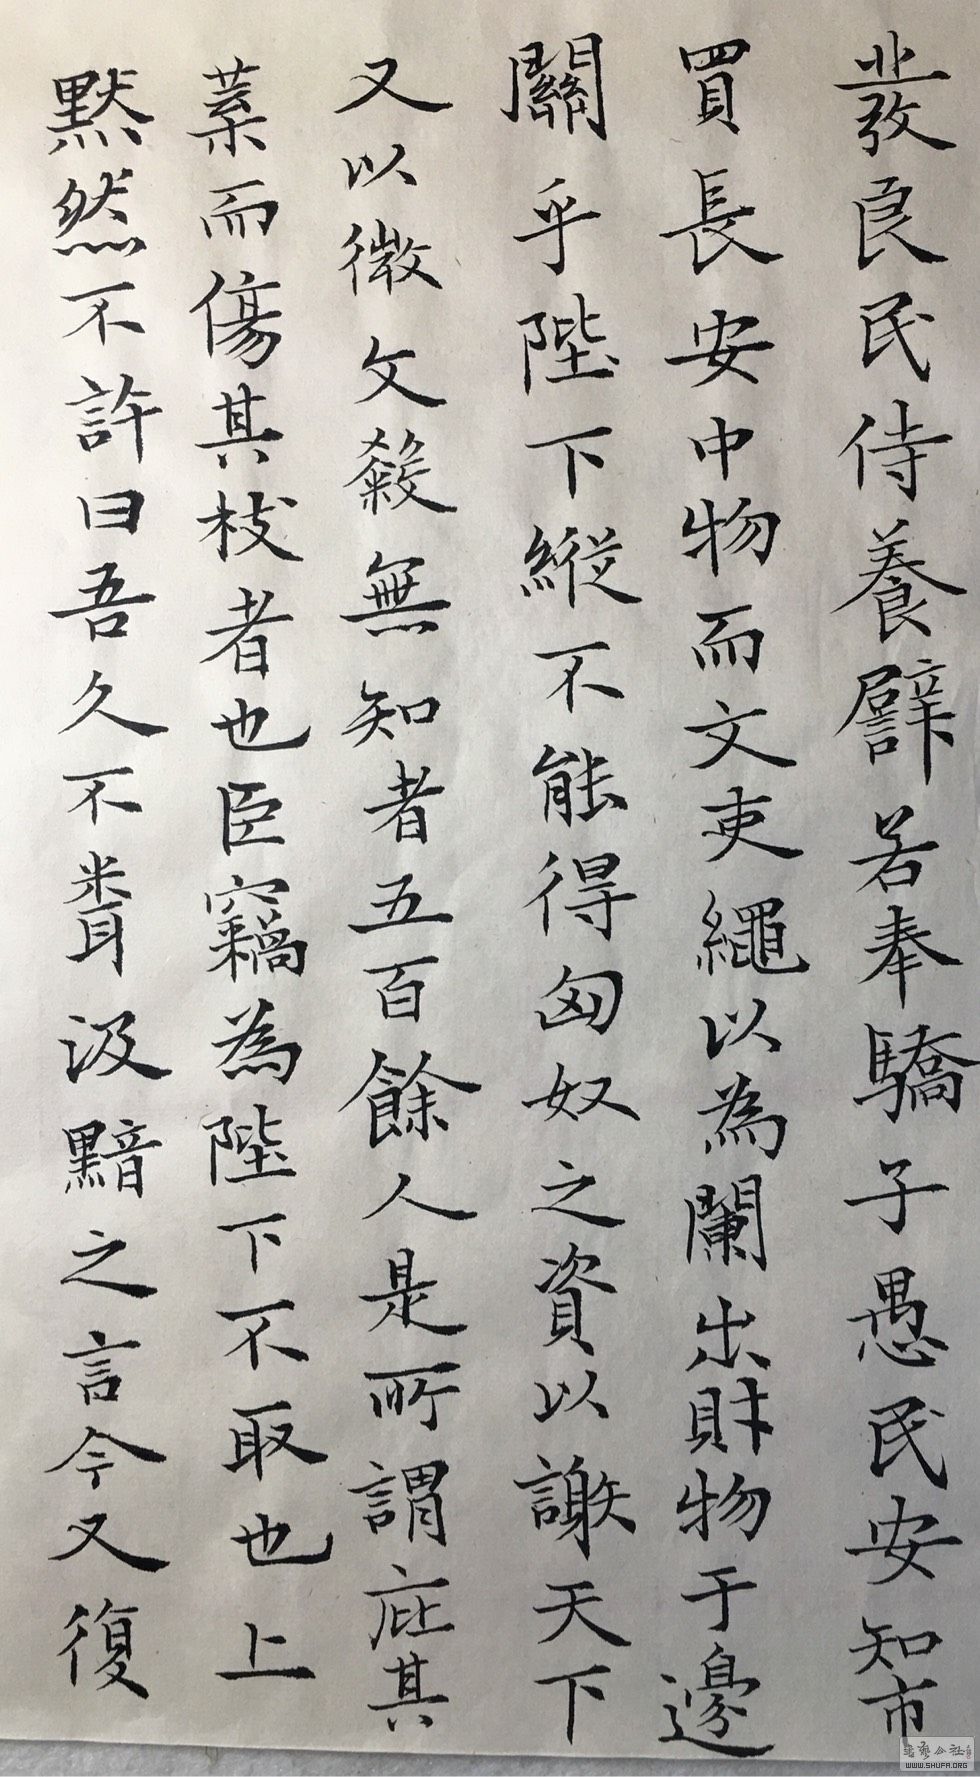 發良民侍養譬若奉驕子愚民安知市
買長安中物而文吏繩以為闌出財物于邊
關乎陛下縱不能得匈奴之資以謝天下
又以微文殺無知者五百餘人是所謂庇其
葉而傷其枝者也臣竊為陛下不取也上
默然不許曰吾久不聞汲黯之言今又復
WWW.SHUFA.ORG